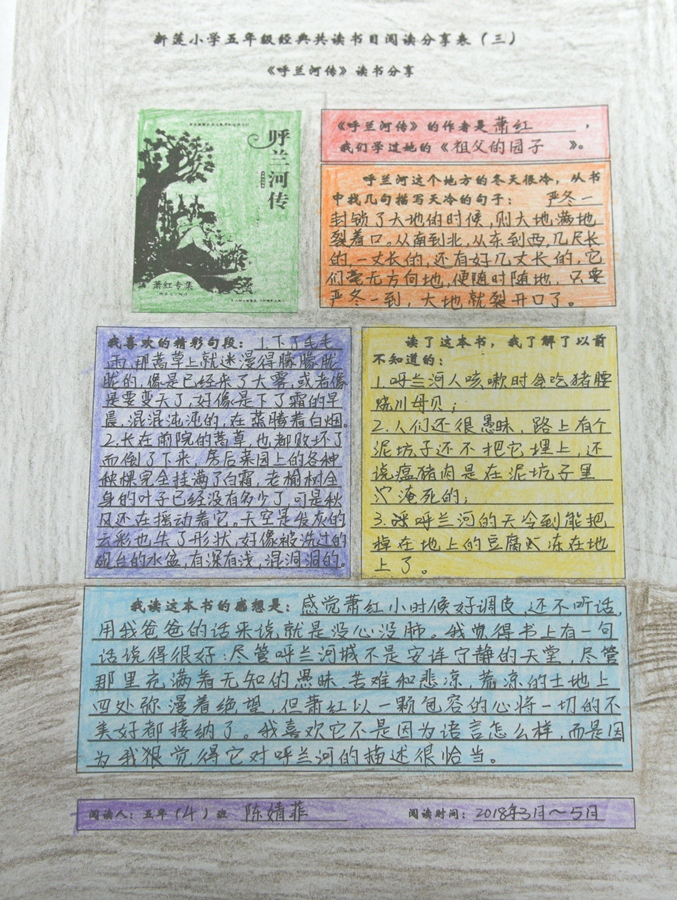 新莲小学五年级经典共读书目阅读分享表（三）
《呼兰河传》读书分享
呼兰河传
萧红专集
《呼兰河传》的作者是萧红，
我们学过她的《祖父的园子》。
呼兰河这个地方的冬天很冷，从书
中找几句描写天冷的句子：严冬一
封锁了大地的时候，则大地满地
裂着口。从南到北，从东到西，几尺长
的，一丈长的，还有好几丈长的，它
们毫无方向地，便随时随地，只要
严冬一到，大地就裂开口了。
我喜欢的精彩句段：1.下了毛毛
雨，那蒿草上就迷漫得朦朦胧
胧的，像是已经来了大雾，或者像
是要变天了，好像是下了霜的早
晨，混混沌沌的，在蒸腾着白烟。
2.长在前院的蒿草，也都败坏了
而倒了下来，房后菜园上的各种
秧棵完全挂满了白霜，老榆树全
身的叶子已经没有多少了，可是秋
风还在摇动着它。天空是发灰的
云彩也失了形状，好像被洗过的
砚台的水盆，有深有浅，混洞洞的。
读了这本书，我了解了以前
不知道的：
1.呼兰河人咳嗽时会吃猪腰
烧川母贝；
2.人们还很愚昧，路上有个
泥坑子还不把它埋上，还
说瘟猪肉是在泥坑子里
淹死的；
3.呼兰河的天冷到能把
掉在地上的豆腐冻在地
上了。
我读这本书的感想是：感觉萧红小时候好调皮，还不听话，
用我爸爸的话来说就是没心没肺。我觉得书上有一句
话说得很好：尽管呼兰河城不是安详宁静的天堂，尽管
那里充满着无知的愚昧、苦难和悲凉，荒凉的土地上
四处弥漫着绝望，但萧红以一颗包容的心将一切的不
美好都接纳了。我喜欢它不是因为语言怎么样，而是因
为我狠觉得它对呼兰河的描述很恰当。
阅读人：五年（4）班 陈婧菲 阅读时间：2018年3月～5月